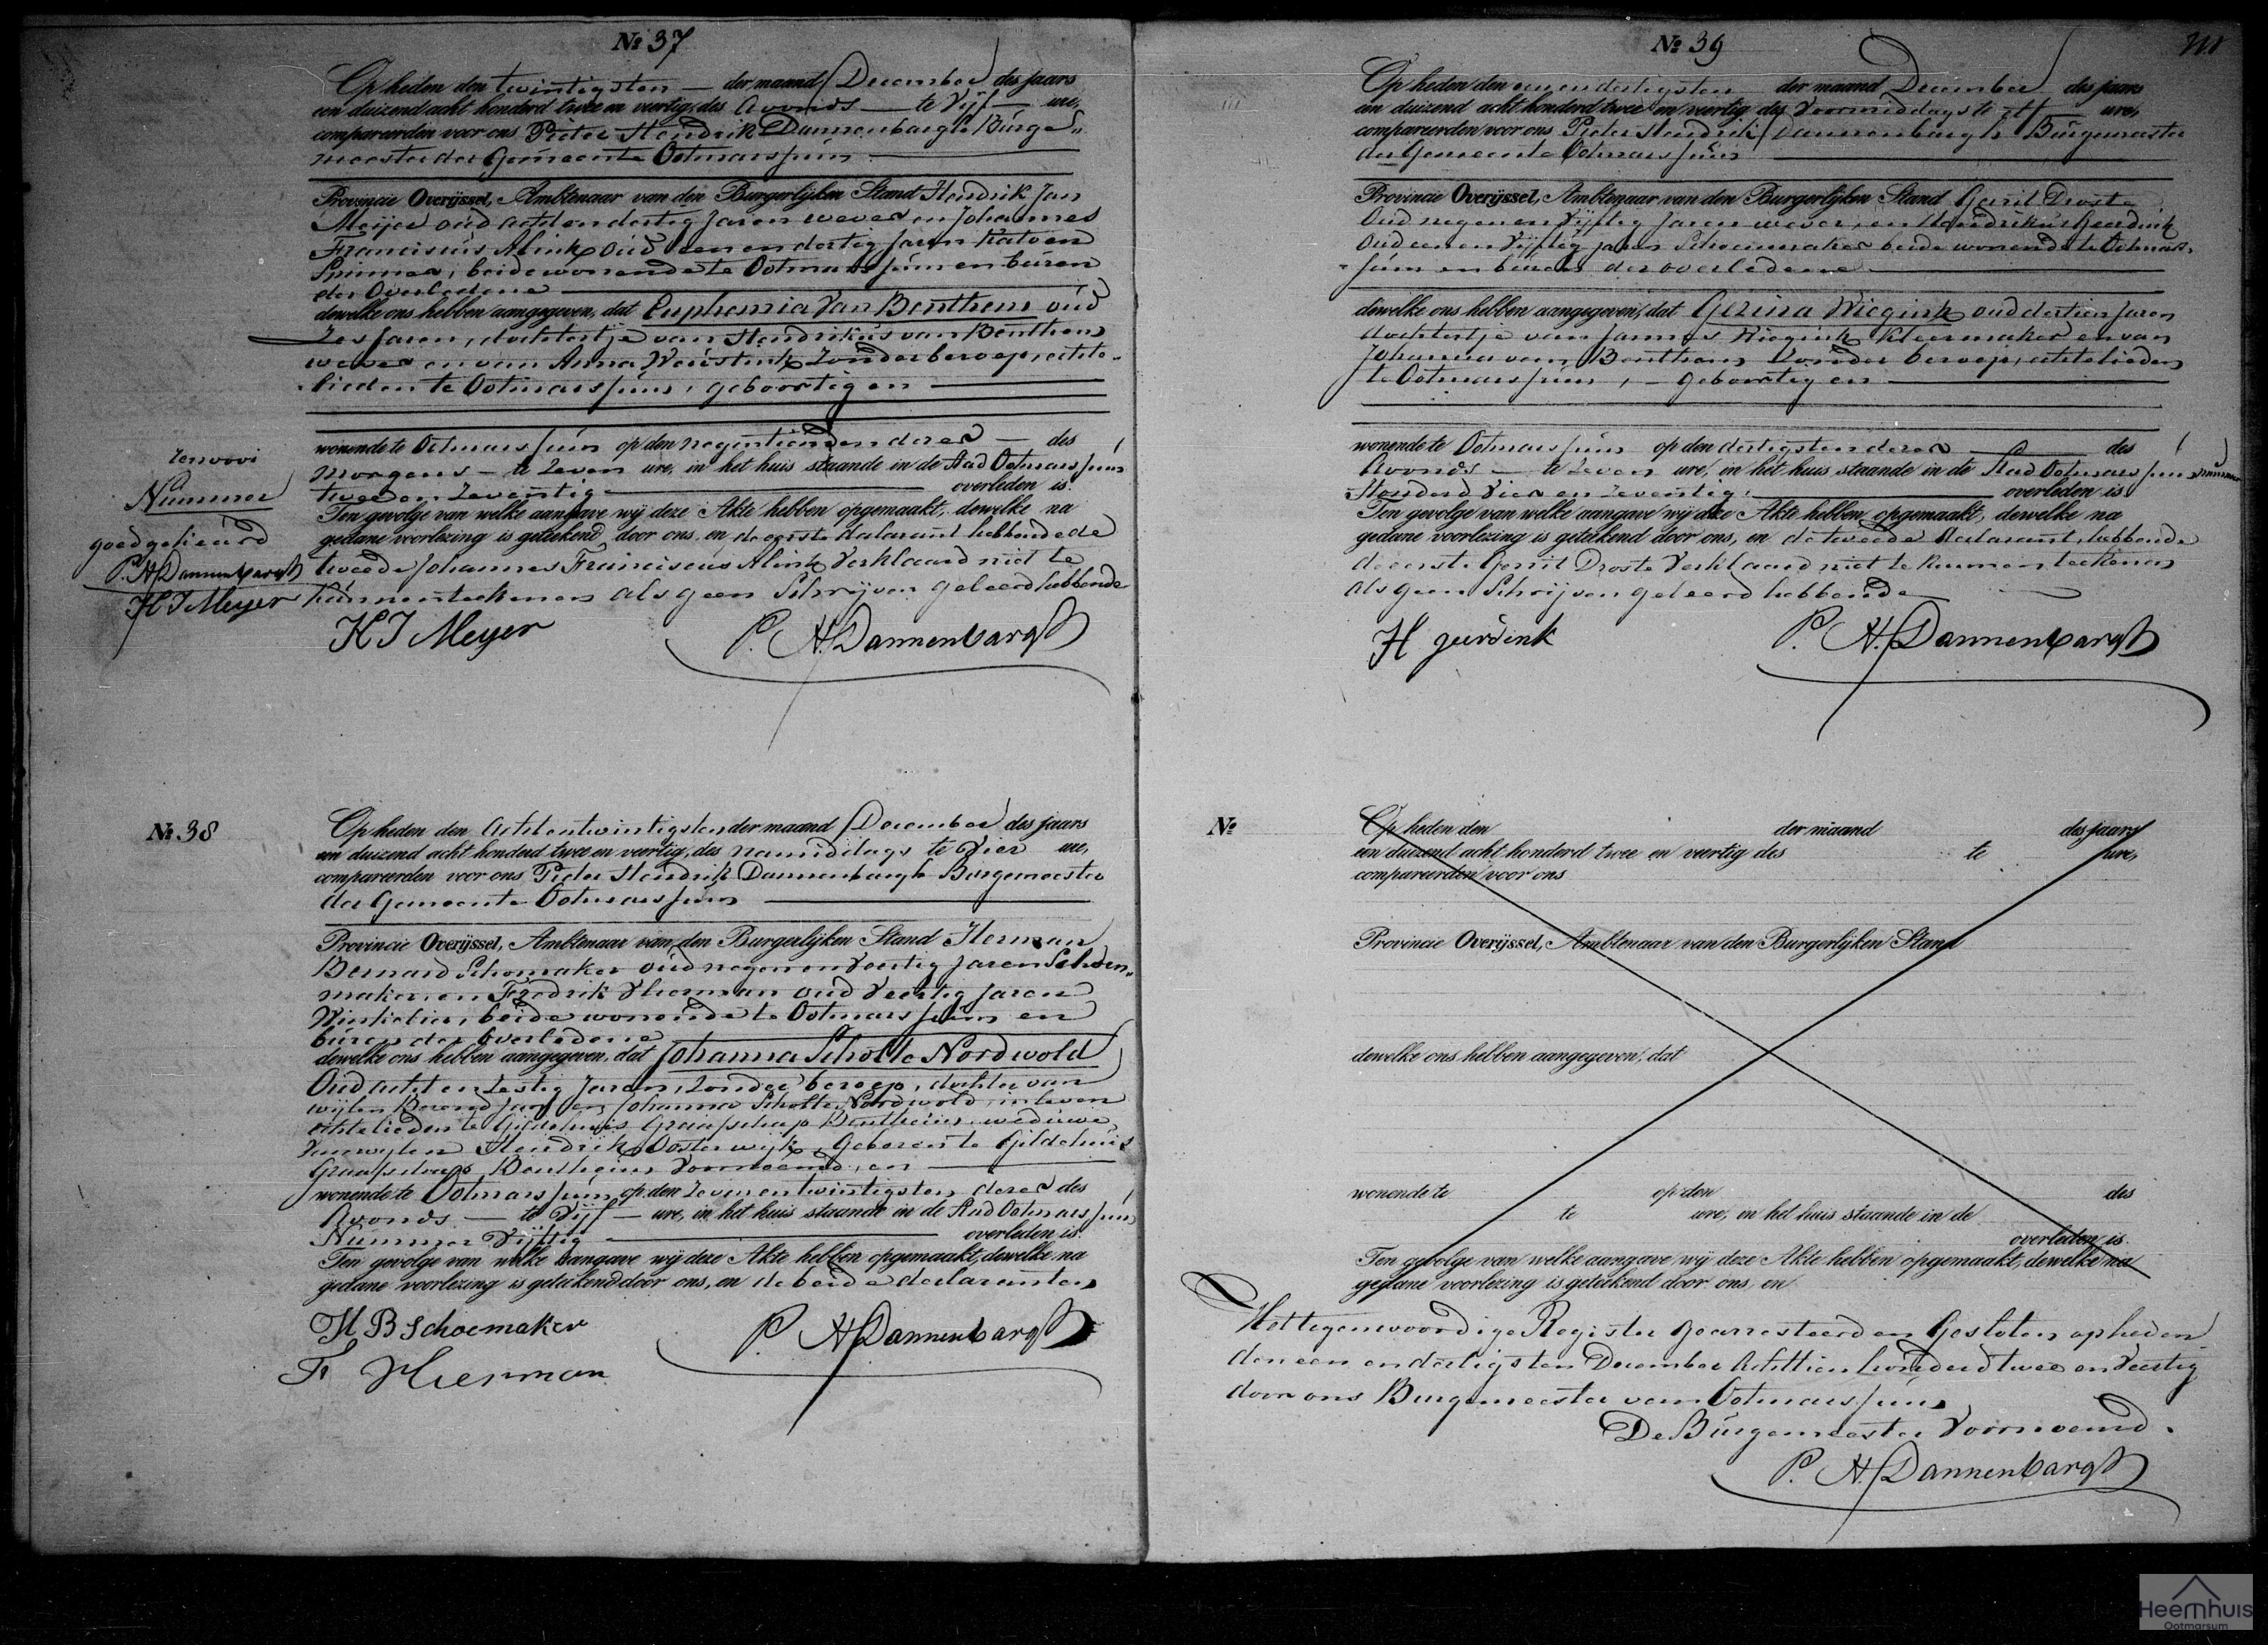 № 37
Op heden den twintigsten der maand December des jaars
een duizend acht honderd twee en veertig, des Avonds te Vijf ure,
compareerden voor ons Pieter Hendrik Dannenbargh Burge„
meester der Gemeente Ootmarssum
Provincie Overijssel, Ambtenaar van den Burgerlijken Stand Hendrik Jan
Meijer oud acht en dertig Jaren wever en Johannes
Franciscus Alink oud een en dertig Jaren Katoen
Spinner, beide wonende te Ootmarssum en buren
der Overledene
dewelke ons hebben aangegeven, dat Euphemia Van Benthem oud
Zes Jaren, dochtertje van Hendrikus van Benthem
wever en van Anna Zonder beroep, echte-
lieden te Ootmarssum, geboortig en
wonende te Ootmarssum op den negentienden dezer des
morgens te Zeven ure, in het huis staande in de Stad Ootmarssum
twee en Zeventig overleden is.
Ten gevolge van welke aangave wij deze Akte hebben opgemaakt, dewelke na
gedane voorlezing is geteekend door ons, en de eerste declarant hebbende de
tweede Johannes Franciscus Alink Verklaard niet te
kunnen teekenen als geen Schrijven geleerd hebbende
renvooi
Nummer
goedgekeurd
P. H. Dannenbargh
H J Meyer
H J Meyer P. H. Dannenbargh
№ 38
Op heden den Acht en twintigsten der maand December des jaars
een duizend acht honderd twee en veertig, des namiddags te Vier ure,
compareerden voor ons Pieter Hendrik Dannenbargh Burgemeester
der Gemeente Ootmarssum
Provincie Overijssel, Ambtenaar van den Burgerlijken Stand Herman
Bernard Schomaker oud negen en Veertig Jaren Schoen„
maker, en Fredrik Vleerman oud Veertig Jaren
Winkelier, beide wonende te Ootmarssum en
buren der Overledene
dewelke ons hebben aangegeven, dat Johanna Scholte Nordwold
Oud acht en Zestig Jaren, Zonder beroep, dochter van
wijlen Berend Jan en Johanna Scholte Nordwold, in leven
echtelieden te Gildehuis Graafschap Bentheim weduwe
van wijlen Hendrik Oosterwijk, Geboren te Gildehuis
Graafschap Bentheim Voornoemd, en
wonende te Ootmarssum op den Zeven en twintigsten dezer des
Avonds te Vijf ure, in het huis staande in de Stad Ootmarssum
Nummer Vijftig overleden is.
Ten gevolge van welke aangave wij deze Akte hebben opgemaakt, dewelke na
gedane voorlezing is geteekend door ons, en de beide declaranten
H B Schoemaker P. H. Dannenbargh
F Vleerman
№ 39
Op heden den een en dertigsten der maand December des jaars
een duizend acht honderd twee en veertig, des Voormiddags te ure,
compareerden voor ons Pieter Hendrik Dannenbargh Burgemeester
der Gemeente Ootmarssum
Provincie Overijssel, Ambtenaar van den Burgerlijken Stand Gerrit Droste
Oud negen en Vijftig Jaren wever, en Hendrikus Geerdink
Oud een en Vijftig Jaren Schoenmaker beide wonende te Ootmars-
sum en buren der overledene
dewelke ons hebben aangegeven, dat Gezina Wiegink oud dertien Jaren
dochtertje van Jannes Wiegink Kleermaker en van
Johanna van Benthem Zonder beroep, echtelieden
te Ootmarssum, geboortig en
wonende te Ootmarssum op den dertigsten dezer des
Avonds te Zeven ure, in het huis staande in de Stad Ootmarssum nummer
Honderd Vier en Zeventig overleden is
Ten gevolge van welke aangave wij deze Akte hebben opgemaakt, dewelke na
gedane voorlezing is geteekend door ons, en de tweede declarant, hebbende
de eerste Gerrit Droste Verklaard niet te kunnen teekenen
als geen Schrijven geleerd hebbende
H geerdink P. H. Dannenbargh
№
Op heden den der maand des jaars
een duizend acht honderd twee en veertig des te ure,
compareerden voor ons
Provincie Overijssel, Ambtenaar van den Burgerlijken Stand
dewelke ons hebben aangegeven, dat
wonende te op den des
te ure, in het huis staande in de
overleden is.
Ten gevolge van welke aangave wij deze Akte hebben opgemaakt, dewelke na
gedane voorlezing is geteekend door ons, en
Het tegenwoordige Register Gearresteerd en Gesloten op heden
den een en dertigsten December Achttien honderd twee en Veertig
door ons Burgemeester van Ootmarssum
De Burgemeester Voornoemd.
P. H. Dannenbargh
Heemhuis
Ootmarsum